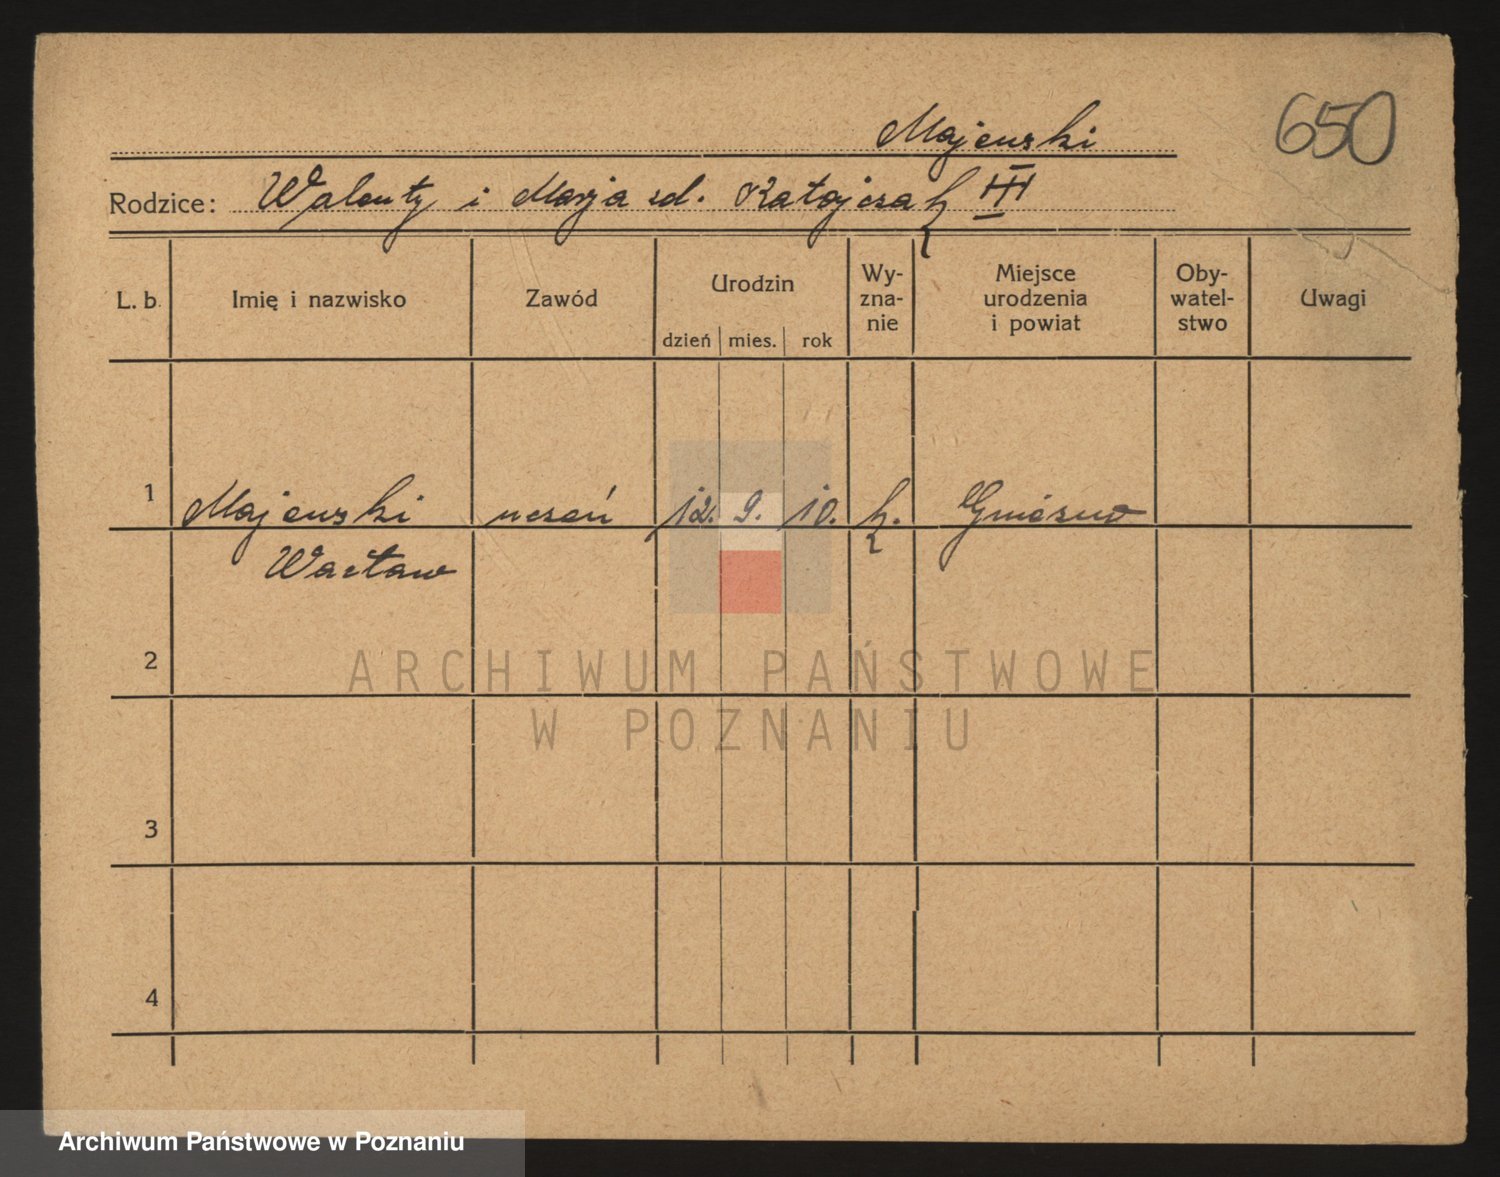 Majewski
650
Rodzice: Walenty i Marja zd. Ratajczak III
L. b. Imię i nazwisko Zawód Urodzin dzień mies. rok Wy-zna-nie Miejsce urodzenia i powiat Oby-watel-stwo Uwagi
1 Majewski uczeń 12. 9. 10. k. Gniezno
Wacław
2
ARCHIWUM PAŃSTWOWE
W POZNANIU
3
4
Archiwum Państwowe w Poznaniu